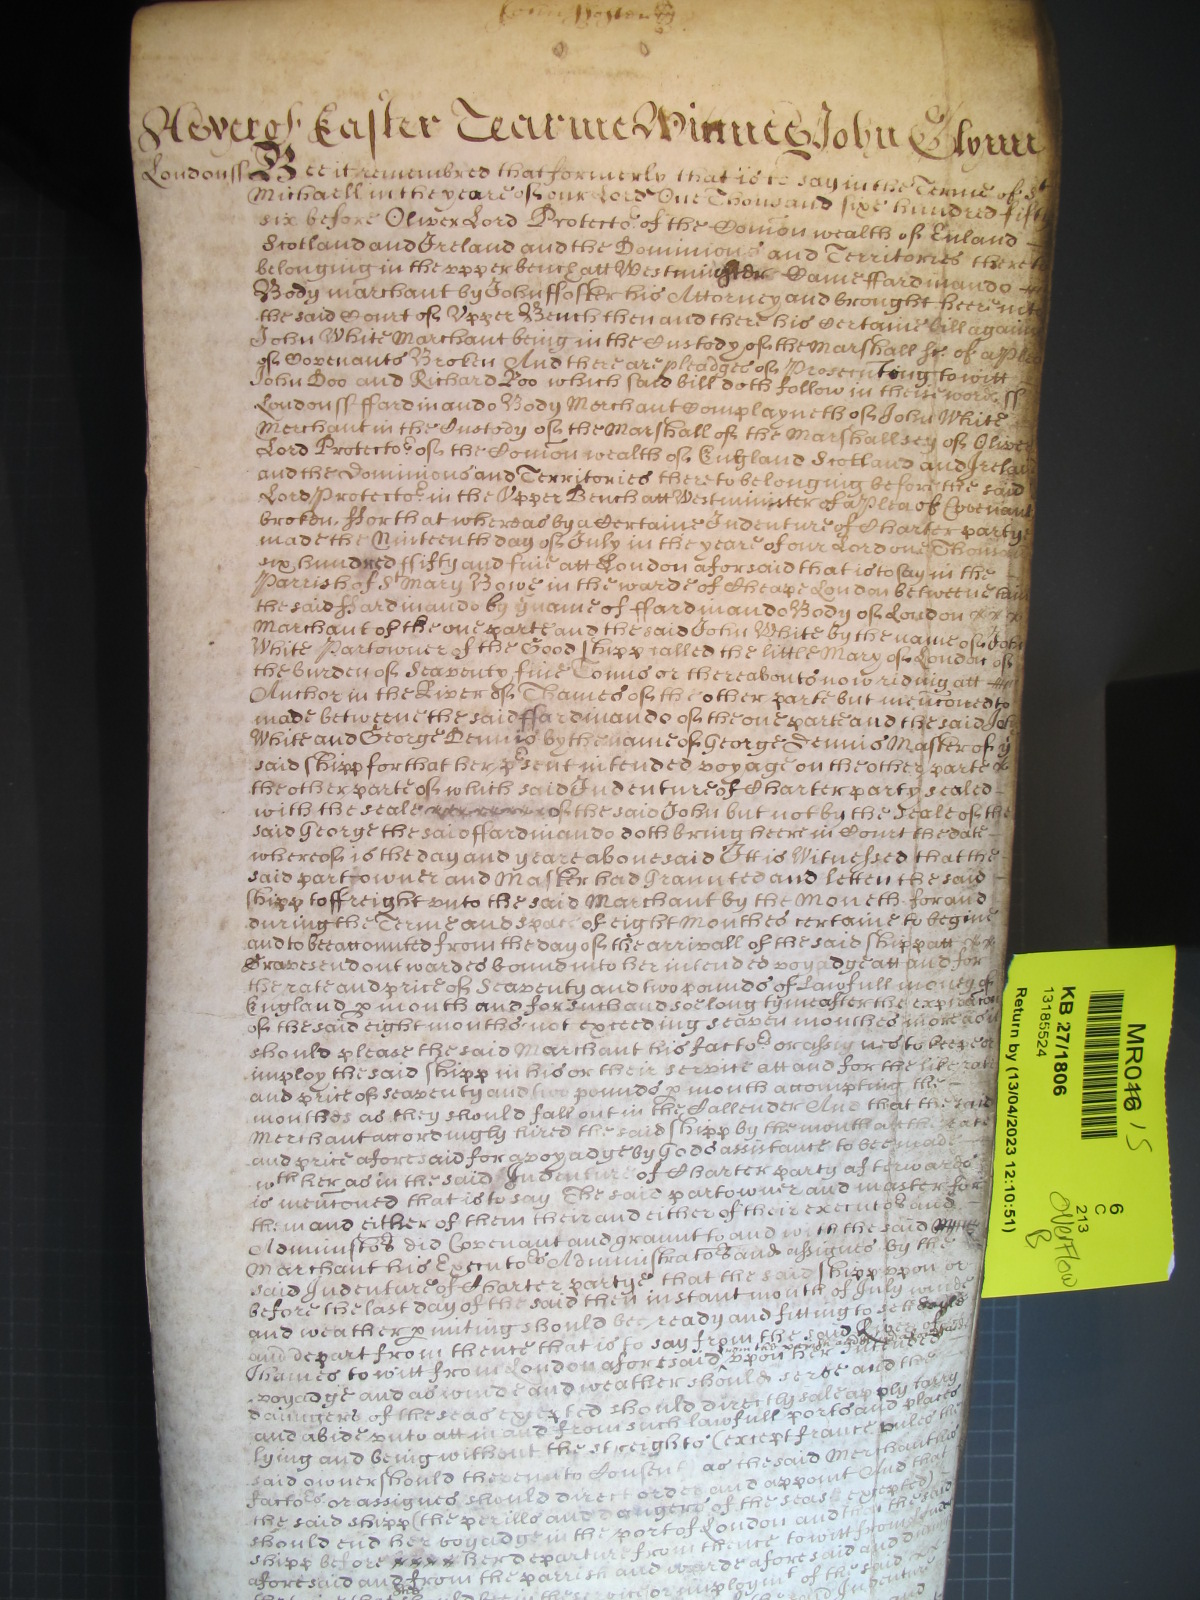 As yet of Easter Tearme Wittnes John Glynn
Londonss Bee it remembred that formerly that is to say in the Terme of St
Michaell in the yeare of our Lord One Thousand sixe hundred fifty
six before Oliver Lord Protector of the Comon wealth of England
Scotland and Ireland and the Dominions and Territories thereto
belonging in the upper bench att Westminster Came ffardinando
Body marchant by John ffoster his Attorney and brought heere into
the said Court of Upper Bench then and there his Certaine bill against
John White Marchant being in the Custody of the Marshall &c of a Plea
of Covenants Broken And there are pleadges of Prosecuting to witt
John Doo and Richard Roo which said bill doth follow in these words ss
Londonss ffardinando Body Merchant Complayneth of John White
Merchant in the Custody of the Marshall of the Marshallsey of Oliver
Lord Protector of the Comon wealth of England Scotland and Ireland
and the Dominions and Territories thereto belonging before the said
Lord Protector in the Upper Bench att Westminster of a Plea of Covenant
broken. For that whereas by a Certaine Indenture of Charter partye
made the Ninteenth day of July in the yeare of our Lord one Thousand
six hundred ffifty and five att London aforsaid that is to say in the
Parrish of St Mary Bowe in the warde of Cheape London betweene
the said ffardinando by ye name of ffardinando Body of London
Marchant of the one parte and the said John White by the name of John
White Partowner of the Good shipp called the little Mary of London of
the burden of Seaventy five Tonns or thereabouts now riding att
Anchor in the River of Thames of the other parte but menconed to
made betweene the said ffardinando of the one parte and the said John
White and George Dennis by the name of George Dennis Master of ye
said shipp for that her psent intended voyage on the other parte
the other parte of which said Indenture of Charter party sealed
with the seale of the said John but not by the Seale of the
said George the said ffardinando doth bring heere in Court the date
whereof is the day and yeare abovesaid Itt is Witnessed that the
said part owner and Master had Graunted and letten the said
shipp to ffreight unto the said Marchant by the Moneth for and
during the Terme and space of eight Monthes certaine to begine
and to bee accounted from the day of the arrivall of the said shipp att
Gravesend outwardes bound into her intended voyadge att and for
the rate and price of Seaventy and two pounds of Lawfull money of
England p month and for such and soe long tyme after the expiracon
of the said eight months not exceeding seaven monthes more as it
should please the said Marchant his factors or assignes to keepe or
imploy the said shipp in his or their service att and for the like rate
and price of seaventy and two pounds p month accompting the
monthes as they should fall out in the Callender And that the said
Merchant accordingly hired the said shipp by the month att the rate
and price aforesaid for a voyadge by Gods assistance to bee made
wth her as in the said Indenture of Charter party afterwards
is menconed that is to say The said partowner and master for
them and either of them their and either of their executors and
Adminstors did Covenant and graunt to and with the said
Marchant his Executors Administrators and assignes by the
said Indenture of Charter partye that the said shipp upon or
before the last day of the said then instant month of July winde
and weather pmiting should bee ready and fitting to sett saile
and depart from thence that is to say from the said River of
Thames to witt from London aforesaid upon her Intended
voyadge and as winde and weather should serve and the
daungers of the seas excepted should directly saile apply tarry
and abide unto att in and from such lawfull ports and places
lying and being without the streights (except france unles the
said owner should thereunto Consent) as the said Merchant his
factors or assignes should direct order and appoint And that
the said shipp (the perills and dangers of the seas excepted)
should end her voyadge in the port of London and that the said
shipp before her departure from thence to witt from
aforesaid and from the parrish and warde aforesaid and
MR016
KB 27/1806
13185524
Return by (13/04/2023 12:10:51)
6
C
213
overflow
B